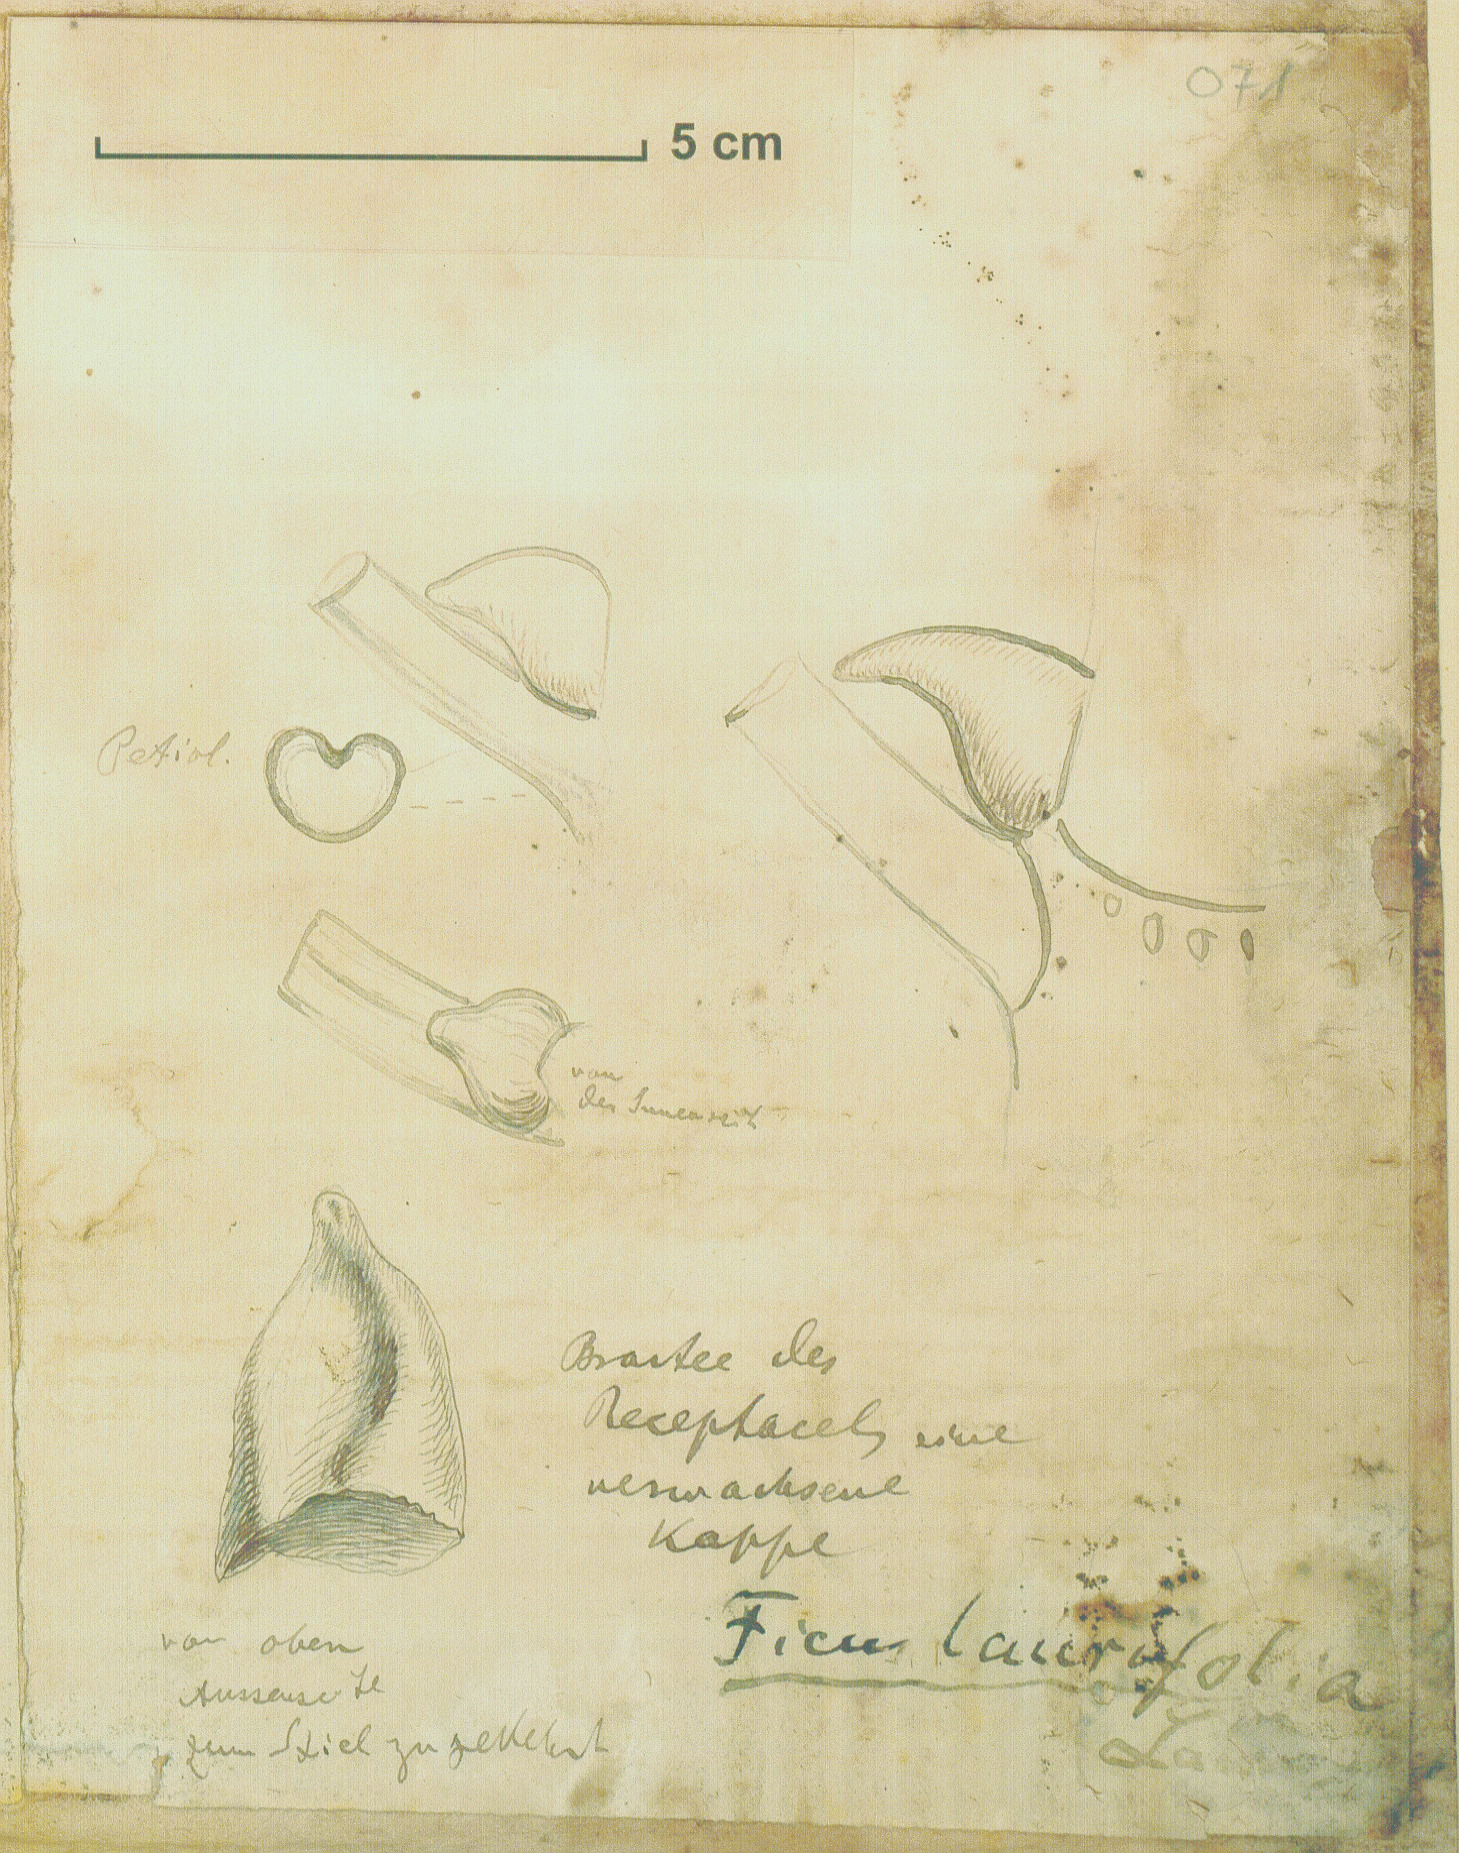 071
5 cm
Petiol.
von
der Innenseite
Bractee des
Receptacels eine
verwachsene
Kappe
Ficus laurifolia
Lam
von oben
Aussenseite
zum Stiel zugekehrt